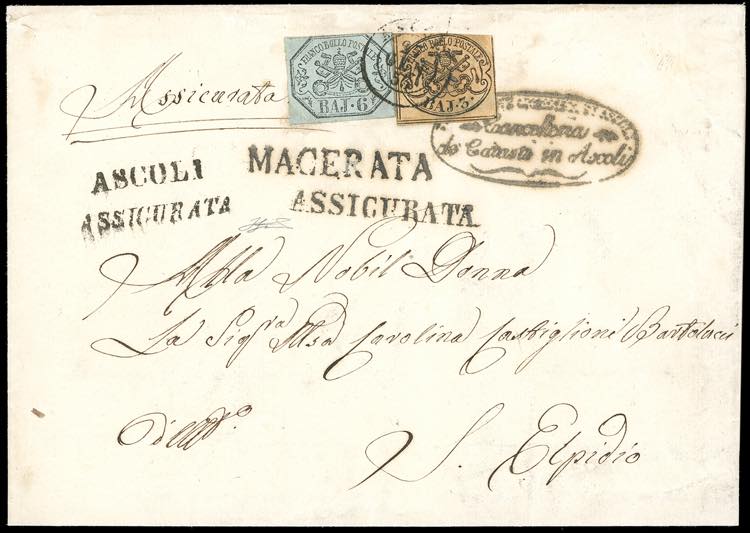 Assicurata
FRANCO BOLLO POSTALE
BAJ. 6
BOLLO POSTALE
BAJ. 5
Cancelleria
del Catasto in Ascoli
ASCOLI
ASSICURATA
MACERATA
ASSICURATA
Alla Nobil Donna
La Sigra Msa Carolina Castiglioni Bartolacci
S. Elpidio